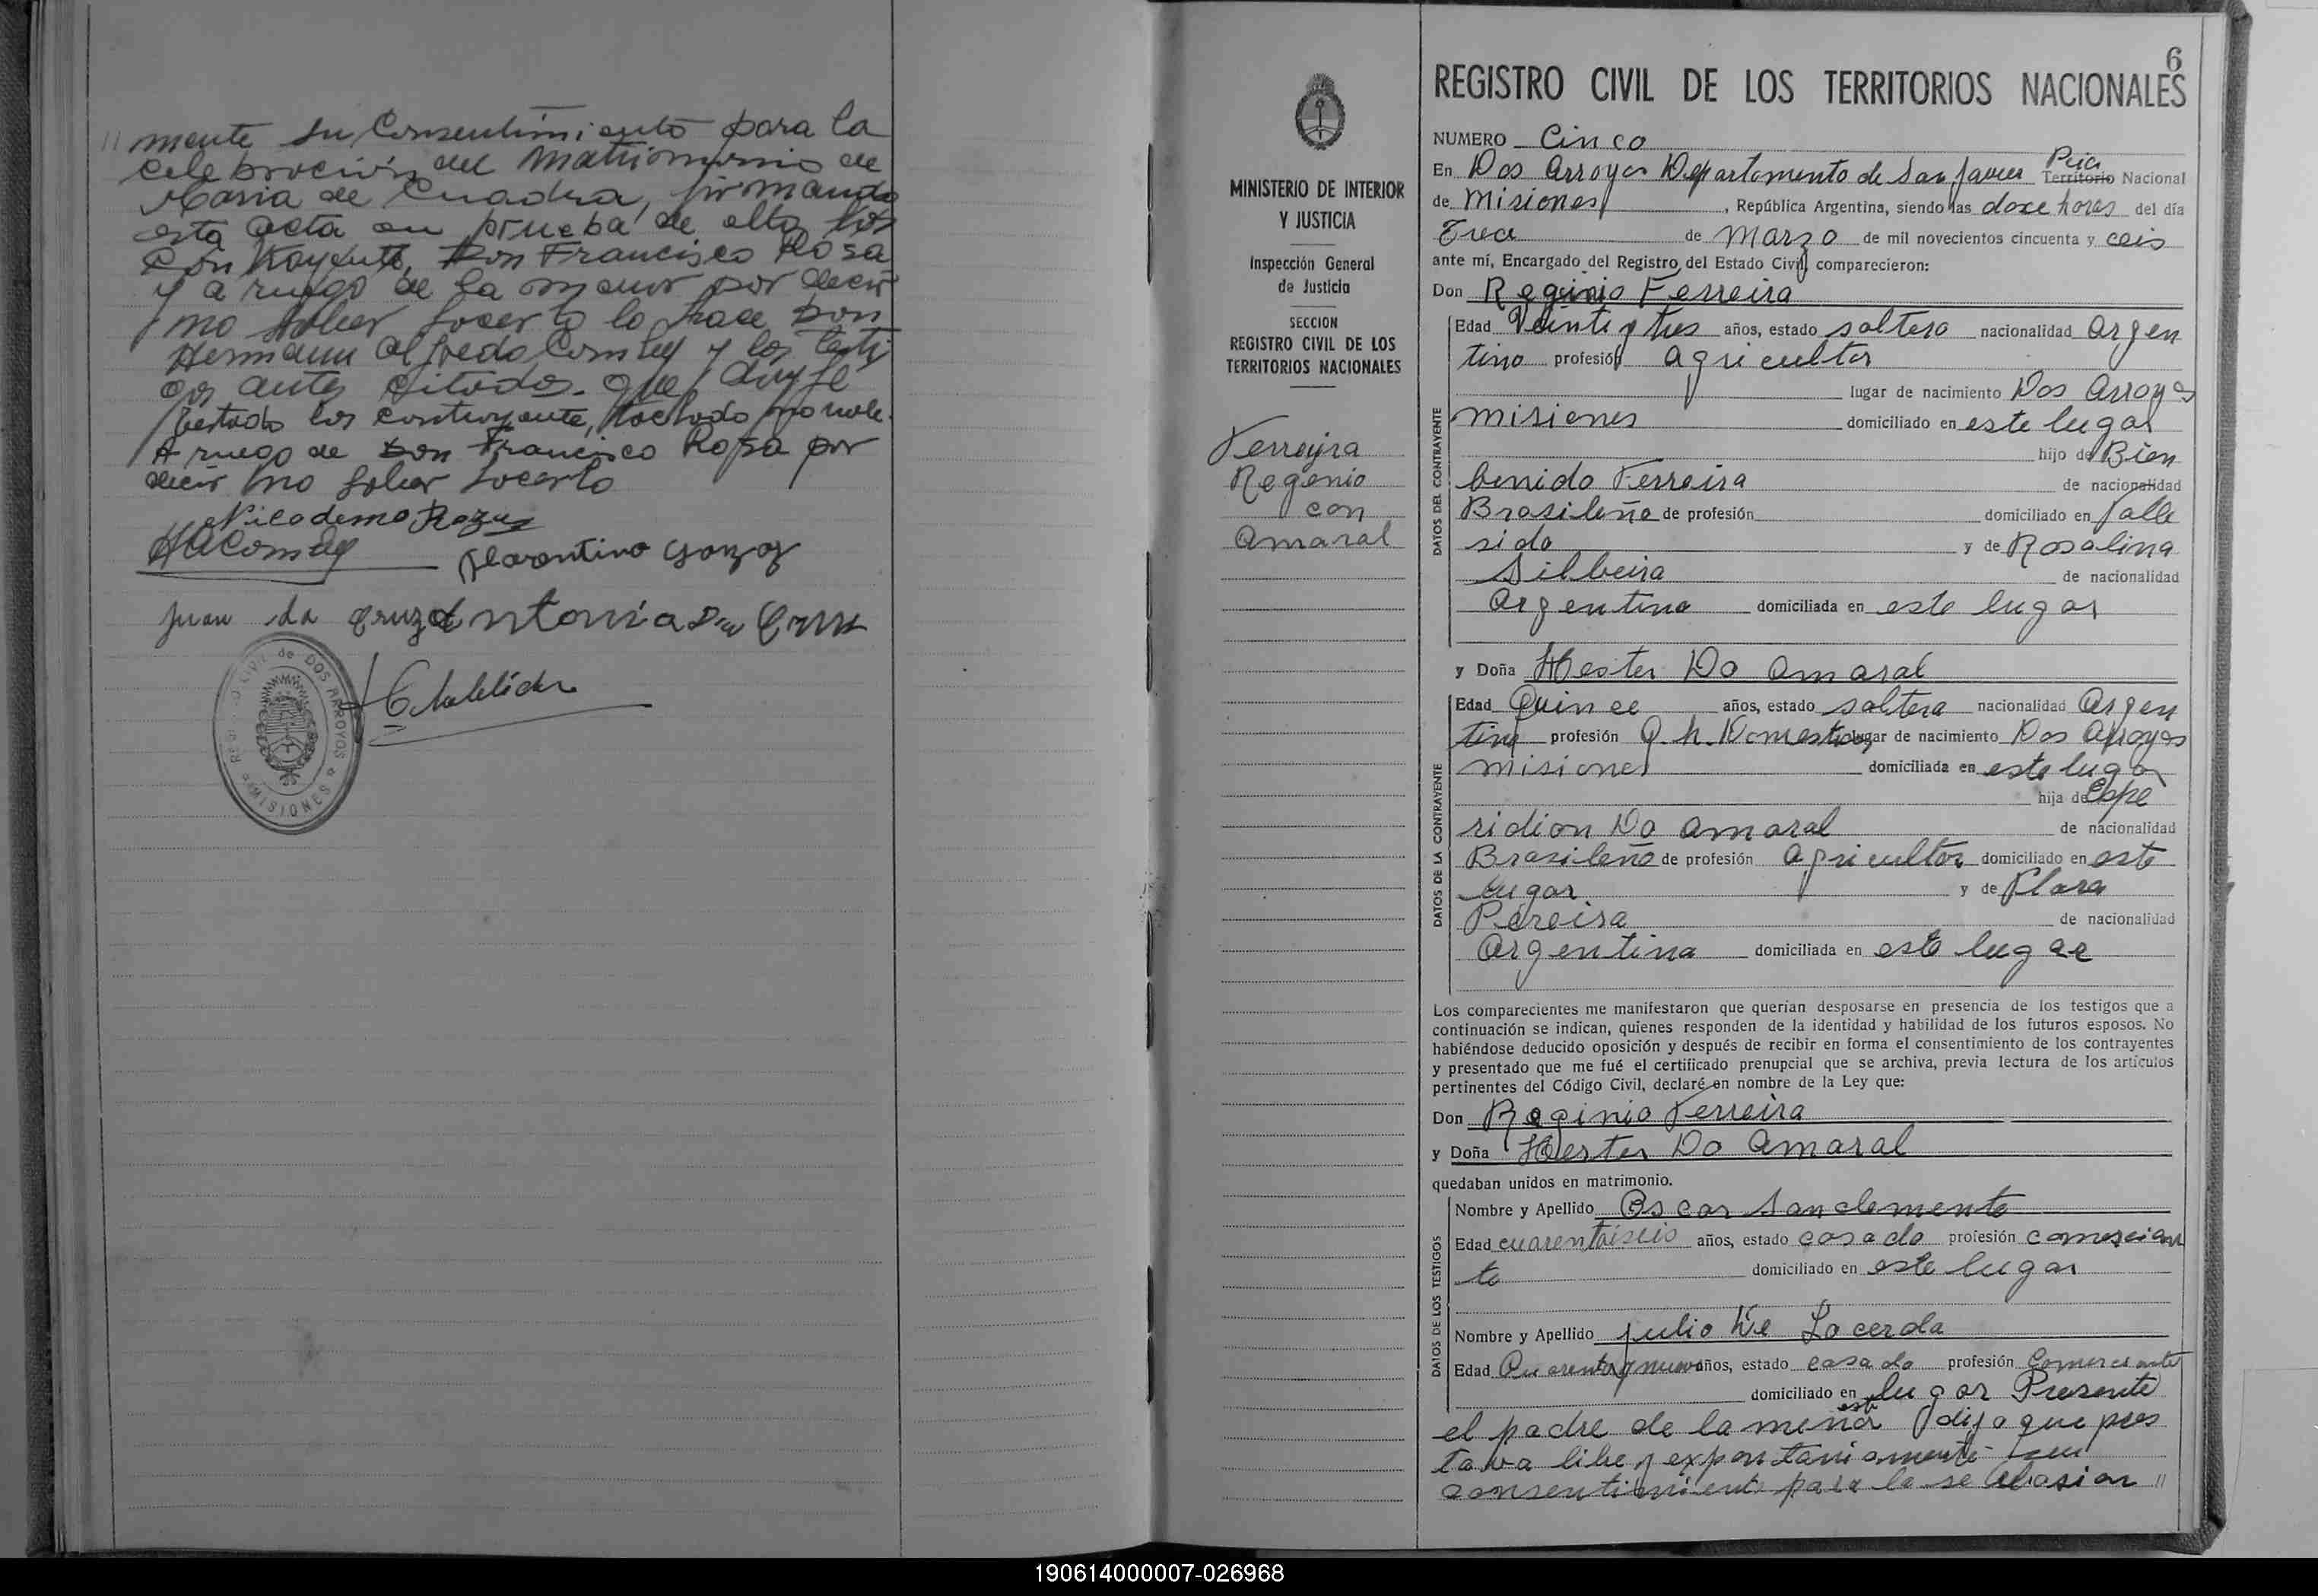 // mente su Consentimiento para la
celebración del Matrimonio de
Maria de Cuadra, firmando
esta acta en prueba de ello los
Contrayente, Don Francisco Rosa
y a ruego de la menor por decir
no saber hacerlo lo hace Don
Hermann Alfredo y los testi
gos antes citados. que doy fe
Testado los contrayente, tachado no vale.
A ruego de Don Francisco Rosa por
decir no saber hacerlo
Nicodemo Rozas
Florentino
Juan da Cruz Antonia Da Cruz
REGISTRO CIVIL de DOS ARROYOS
MISIONES
6
REGISTRO CIVIL DE LOS TERRITORIOS NACIONALES
MINISTERIO DE INTERIOR
Y JUSTICIA
Inspección General
de Justicia
SECCION
REGISTRO CIVIL DE LOS
TERRITORIOS NACIONALES
Ferreyra
Regenio
con
Amaral
NUMERO Cinco
En Dos Arroyos Departamento de San Javier Pcia Territorio Nacional
de Misiones, República Argentina, siendo las doce horas del día
Trece de Marzo de mil novecientos cincuenta y ceis
ante mí, Encargado del Registro del Estado Civil, comparecieron:
Don Reginio Ferreira
DATOS DEL CONTRAYENTE
Edad Veinti y tres años, estado soltero nacionalidad Argen
tino profesión agricultor
lugar de nacimiento Dos Arroyos
misiones domiciliado en este lugar
hijo de Bien
benido Ferreira de nacionalidad
Brasileña de profesión domiciliado en falle
sido y de Rosalina
Silbeira de nacionalidad
Argentina domiciliada en este lugar
y Doña Hester Do Amaral
DATOS DE LA CONTRAYENTE
Edad Quince años, estado soltera nacionalidad Argen
tina profesión Q. h. Domesticos lugar de nacimiento Dos Arroyos
misiones domiciliada en este lugar
hija de Espe
ridion Do Amaral de nacionalidad
Brasileño de profesión agricultor domiciliado en este
lugar y de Clara
Pereira de nacionalidad
Argentina domiciliada en este lugar
Los comparecientes me manifestaron que querían desposarse en presencia de los testigos que a
continuación se indican, quienes responden de la identidad y habilidad de los futuros esposos. No
habiéndose deducido oposición y después de recibir en forma el consentimiento de los contrayentes
y presentado que me fué el certificado prenupcial que se archiva, previa lectura de los artículos
pertinentes del Código Civil, declaré en nombre de la Ley que:
Don Reginio Ferreira
y Doña Hester Do Amaral
quedaban unidos en matrimonio.
DATOS DE LOS TESTIGOS
Nombre y Apellido Oscar Sanclemente
Edad cuarentaiseis años, estado casado profesión comercian
te domiciliado en este lugar
Nombre y Apellido Julio De Lacerda
Edad Cuarenta y nueve años, estado casado profesión Comerciante
domiciliado en lugar Presente
el padre de la menor este dijo que pres
tava libe y expontaniamente su
consentimiento para la selebrasion //
190614000007-026968